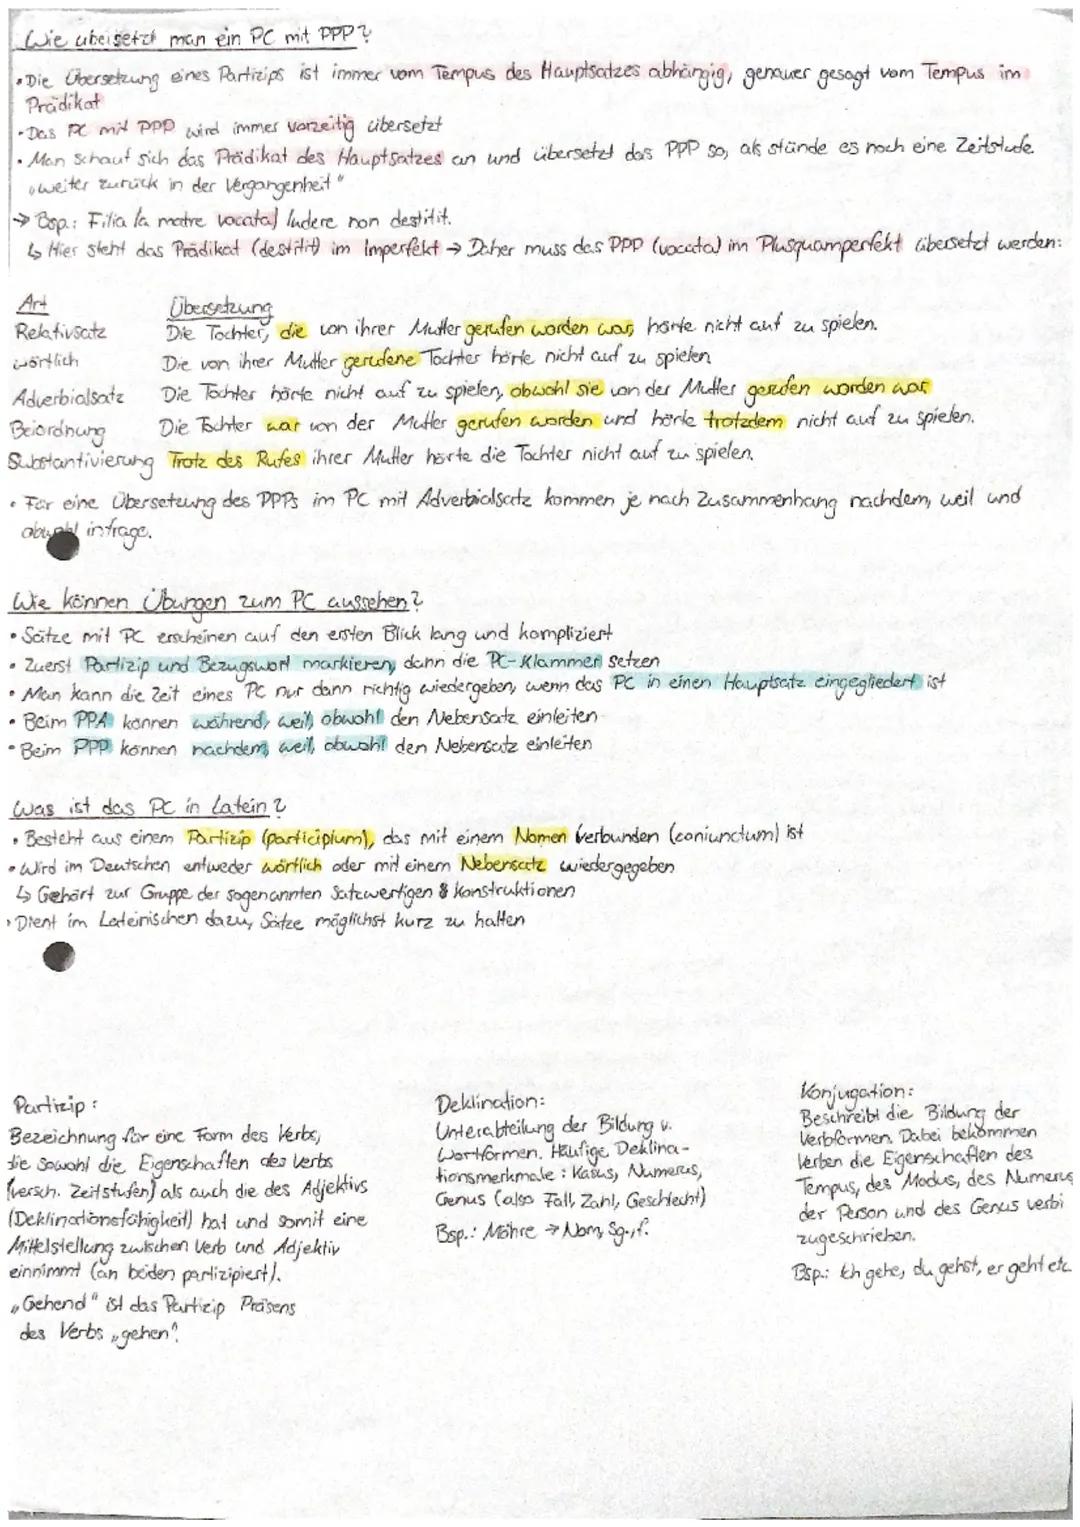 Wie übersetzt man ein PC mit PPP?
• Die Übersetzung eines Partizips ist immer vom Tempus des Hauptsatzes abhängig, genauer gesagt vom Tempus im
Prädikat
• Das PC mit PPP wird immer vorzeitig übersetzt
• Man schaut sich das Prädikat des Hauptsatzes an und übersetzt das PPP so, als stünde es noch eine Zeitstufe
„weiter zurück in der Vergangenheit"
→ Bsp.: Filia (a matre vocata) ludere non destitit.
↳ Hier steht das Prädikat (destitit) im Imperfekt → Daher muss das PPP (vocata) im Plusquamperfekt übersetzt werden:
Art Übersetzung
Relativsatz Die Tochter, die von ihrer Mutter gerufen worden war, hörte nicht auf zu spielen.
wörtlich Die von ihrer Mutter gerufene Tochter hörte nicht auf zu spielen
Adverbialsatz Die Tochter hörte nicht auf zu spielen, obwohl sie von der Mutter gerufen worden war
Beiordnung Die Tochter war von der Mutter gerufen worden und hörte trotzdem nicht auf zu spielen.
Substantivierung Trotz des Rufes ihrer Mutter hörte die Tochter nicht auf zu spielen.
• Für eine Übersetzung des PPPs im PC mit Adverbialsatz kommen je nach Zusammenhang nachdem, weil und
obwohl infrage.
Wie können Übungen zum PC aussehen?
• Sätze mit PC erscheinen auf den ersten Blick lang und kompliziert
• Zuerst Partizip und Bezugswort markieren, dann die PC-Klammer setzen
• Man kann die Zeit eines PC nur dann richtig wiedergeben, wenn das PC in einen Hauptsatz eingegliedert ist
• Beim PPA können während, weil, obwohl den Nebensatz einleiten
• Beim PPP können nachdem, weil, obwohl den Nebensatz einleiten
Was ist das PC in Latein?
• Besteht aus einem Partizip (participium), das mit einem Nomen verbunden (coniunctum) ist
• Wird im Deutschen entweder wörtlich oder mit einem Nebensatz wiedergegeben
↳ Gehört zur Gruppe der sogenannten Satzwertigen Konstruktionen
• Dient im Lateinischen dazu, Sätze möglichst kurz zu halten
Partizip:
Bezeichnung für eine Form des Verbs,
die sowohl die Eigenschaften des Verbs
(versch. Zeitstufen) als auch die des Adjektivs
(Deklinationsfähigkeit) hat und somit eine
Mittelstellung zwischen Verb und Adjektiv
einnimmt (an beiden partizipiert).
„Gehend" ist das Partizip Präsens
des Verbs „gehen".
Deklination:
Unterabteilung der Bildung v.
Wortformen. Häufige Deklina-
tionsmerkmale: Kasus, Numerus,
Genus (also Fall, Zahl, Geschlecht)
Bsp.: Möhre → Nom, Sg., f.
Konjugation:
Beschreibt die Bildung der
Verbformen. Dabei bekommen
Verben die Eigenschaften des
Tempus, des Modus, des Numerus
der Person und des Genus verbi
zugeschrieben.
Bsp.: Ich gehe, du gehst, er geht etc.